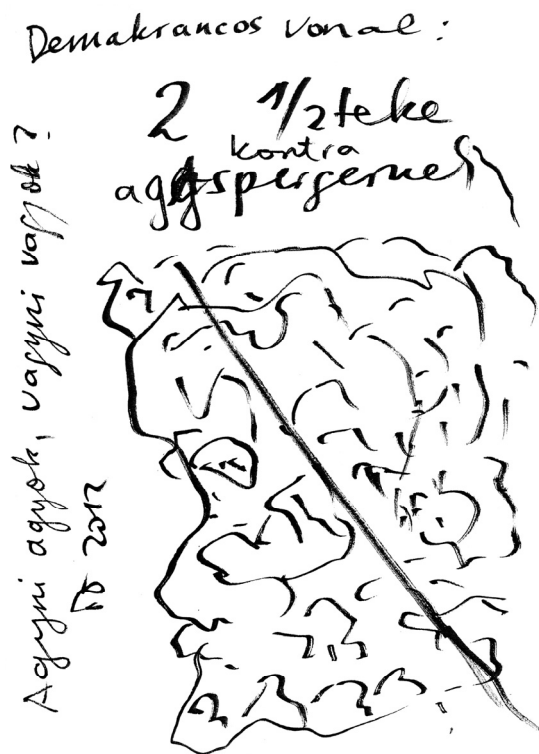 Demakrancos vonal:
2 1/2 teke
kontra
aggspergernel
Agyni agyok, vagyni vagyok?
2012